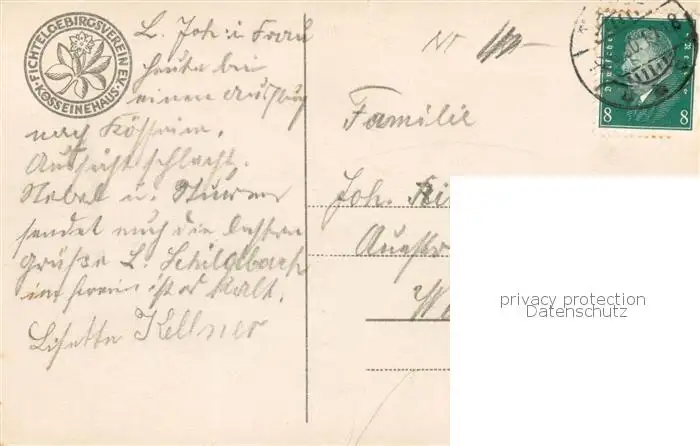 FICHTELGEBIRGSVEREIN E.V.
KÖSSEINEHAUS
L. Joh. u. Frau
heute bei
einem Ausflug
nach Kösseine.
Aussicht schlecht.
Nebel u. Sturm
sendet euch die besten
Grüße L. Schildbach
im Freien ist es kalt.
Lisette Kellner
No
Familie
Joh.
8 8
privacy protection
Datenschutz